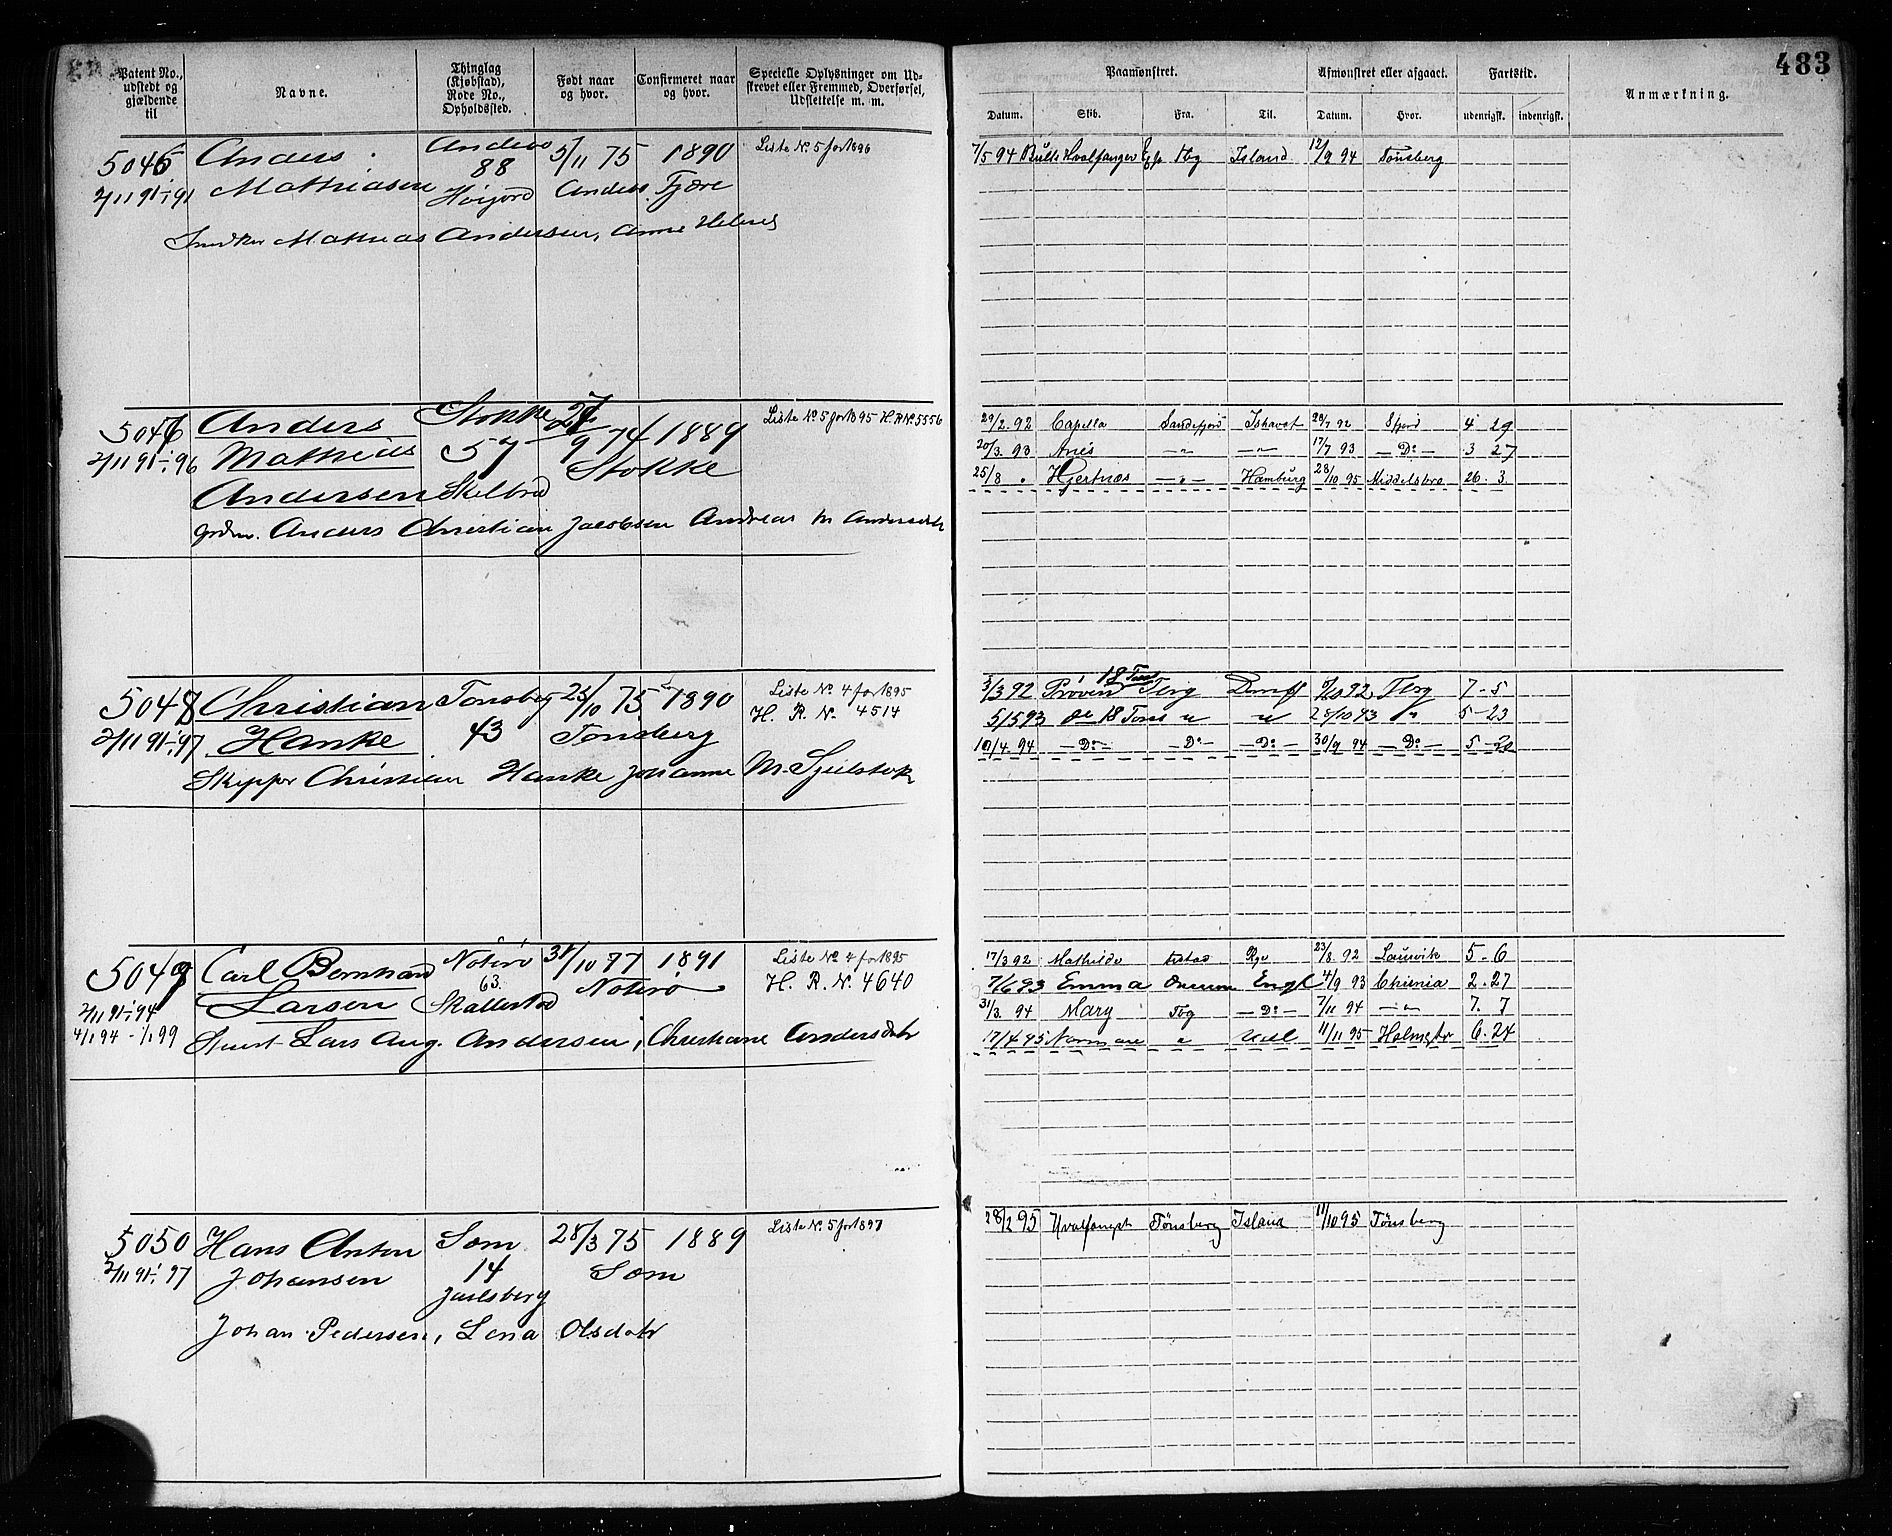 483
Patent No., udstedt og gjældende til
Navne.
Thinglag (Kjøbstad), Rode No., Opholdssted.
Født naar og hvor.
Confirmeret naar og hvor.
Specielle Oplysninger om Udskrevet eller Fremmed, Overførsel, Udslettelse m. m.
Paamønstret.
Afmønstret eller afgaaet.
Fartstid.
Anmærkning.
Datum. Skib. Fra. Til. Datum. Hvor. udenrigsk. indenrigsk.
5046 Anders Andebo 5/11 75 1890 Liste No. 5 for 1896
2/11 91-1/1 91 Mathiasen 88 Høijord Andebo Fjære
Snedker Mathias Andersen, Anne Helene
7/5 94 Bulls Hvalfanger Tbg Island 12/9 94 Tønsberg
5047 Anders Stokke 27/9 74 1889 Liste No. 5 for 1895 H.R.No. 5556
2/11 91-1/1 96 Mathias 57 Stokke
Andersen
Anders Christian Jacobsen Andrea M Andersdtr
29/2 92 Capella Sandefjord Ishavet 29/7 92 Sfjord 4 29
20/3 93 Aries -„- -„- 17/7 93 - Do - 3 27
25/8 „ Hjertnæs -„- Hamburg 28/10 95 Middelsbro 26. 3
5048 Christian Tønsberg 25/10 75 1890 Liste No. 4 for 1895
2/11 91-1/1 97 Hanke 43 Tønsberg H. R. No. 4514
Skipper Christian Hanke Johanne M.
3/3 92 Prøven Tbrg 92 Tbrg 7-5
5/5 93 do 18 Tons „ „ 28/10 93 „ 5-23
10/4 94 - Do - - Do - - Do - 30/9 94 - Do - 5-20
5049 Carl Bernhard Nøterø 31/10 77 1891 Liste No. 4 for 1895
2/11 91-1/1 94 Larsen 63. Skallestad Nøterø H. R. No. 4640
4/1 94 - 1/1 99 Lars Aug. Andersen, Christiane Andersdtr
17/3 92 Mathilde 23/8 92 Laurvik 5-6
7/6 93 Emma Engl 4/9 93 Chrnia 2-27
31/3 94 Mary Tbg - Do - 7/11 94 -„- 7. 7
17/4 95 „ 11/11 95 6-24
5050 Hans Anton Sæm 28/3 75 1889 Liste No. 5 for 1897
2/11 91-1/1 97 Johansen 14 Sæm
Jarlsberg
Johan Pedersen, Lena Olsdatr
28/2 95 Hvalfangst Tønsberg Island 11/10 95 Tønsberg